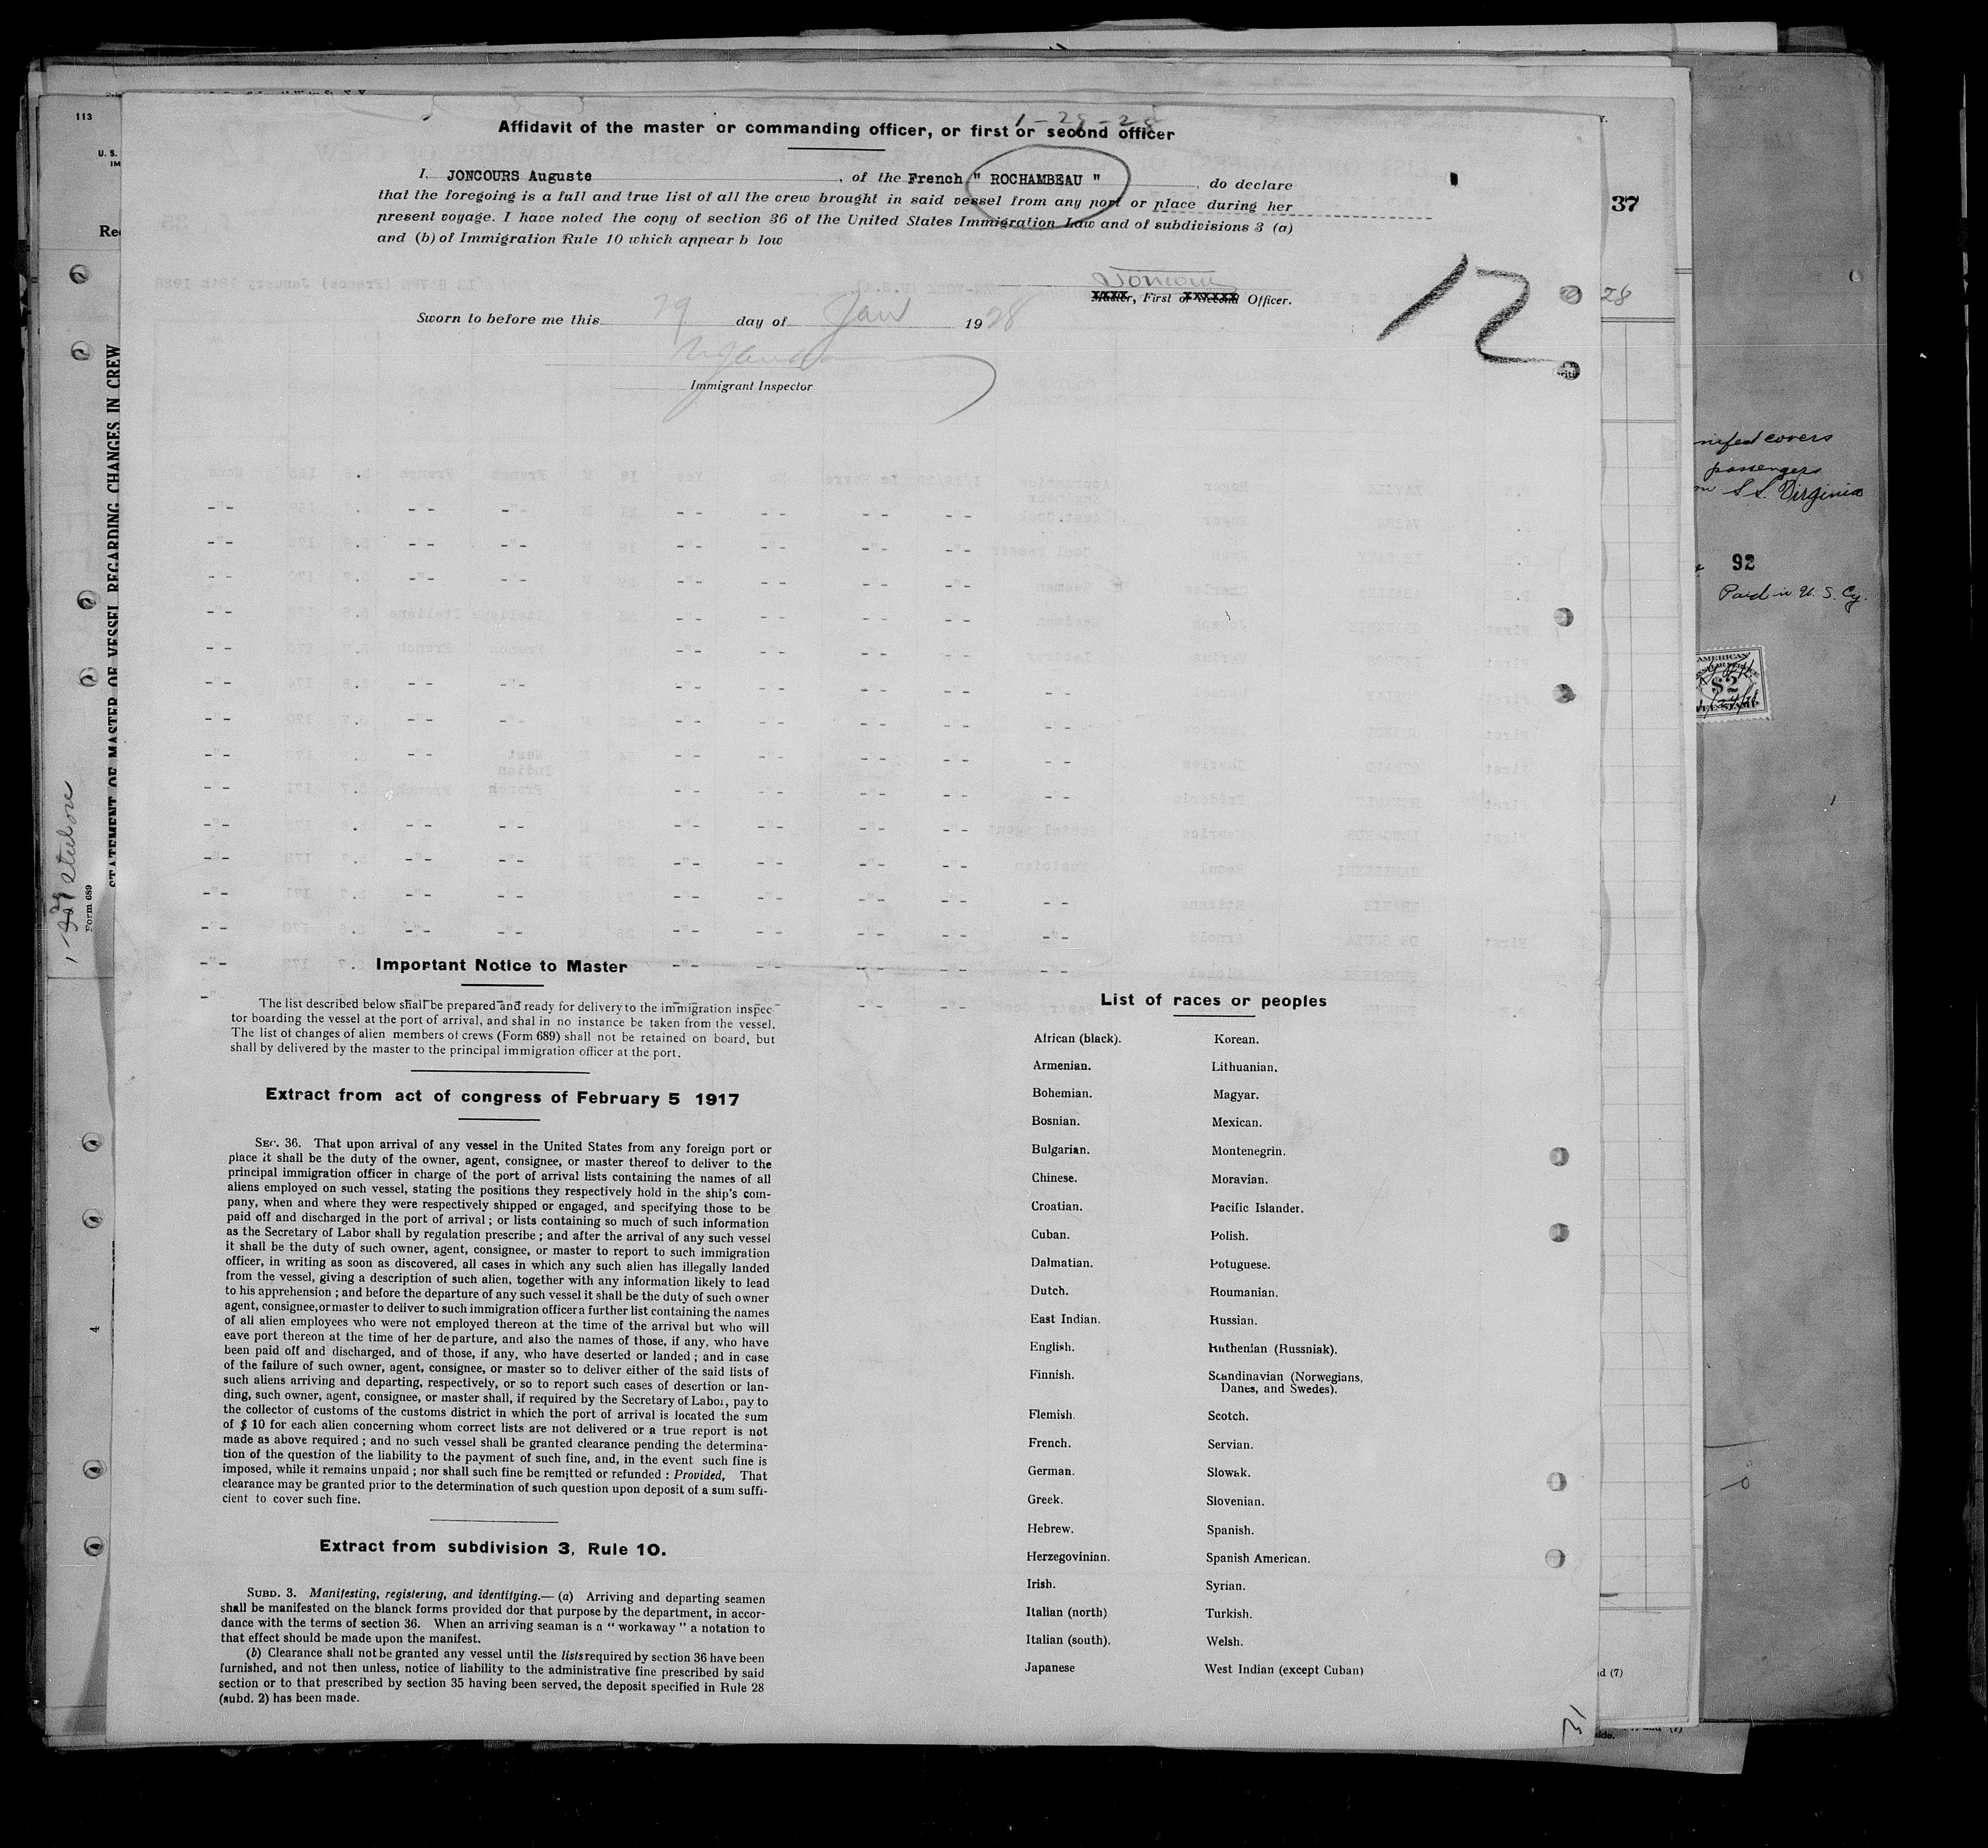 113
U. S.
IM
Re
1-29-28
Affidavit of the master or commanding officer, or first or second officer
I, JONCOURS Auguste , of the French " ROCHAMBEAU " , do declare
that the foregoing is a full and true list of all the crew brought in said vessel from any port or place during her
present voyage. I have noted the copy of section 36 of the United States Immigration Law and of subdivisions 3 (a)
and (b) of Immigration Rule 10 which appear b low
37
12
28
Master, First or Second Officer.
Sworn to before me this 29 day of Jan 1928
Immigrant Inspector
STATEMENT OF MASTER OF VESSEL REGARDING CHANGES IN CREW
Form 689
4
nifest covers
passengers
on S.S. Virginia
92
Paid in U. S. Cy.
AMERICAN
$2
Important Notice to Master
The list described below shall be prepared and ready for delivery to the immigration inspec-
tor boarding the vessel at the port of arrival, and shal in no instance be taken from the vessel.
The list of changes of alien members of crews (Form 689) shall not be retained on board, but
shall by delivered by the master to the principal immigration officer at the port.
Extract from act of congress of February 5 1917
SEC. 36. That upon arrival of any vessel in the United States from any foreign port or
place it shall be the duty of the owner, agent, consignee, or master thereof to deliver to the
principal immigration officer in charge of the port of arrival lists containing the names of all
aliens employed on such vessel, stating the positions they respectively hold in the ship's com-
pany, when and where they were respectively shipped or engaged, and specifying those to be
paid off and discharged in the port of arrival ; or lists containing so much of such information
as the Secretary of Labor shall by regulation prescribe ; and after the arrival of any such vessel
it shall be the duty of such owner, agent, consignee, or master to report to such immigration
officer, in writing as soon as discovered, all cases in which any such alien has illegally landed
from the vessel, giving a description of such alien, together with any information likely to lead
to his apprehension ; and before the departure of any such vessel it shall be the duty of such owner
agent, consignee, or master to deliver to such immigration officer a further list containing the names
of all alien employees who were not employed thereon at the time of the arrival but who will
eave port thereon at the time of her departure, and also the names of those, if any, who have
been paid off and discharged, and of those, if any, who have deserted or landed ; and in case
of the failure of such owner, agent, consignee, or master so to deliver either of the said lists of
such aliens arriving and departing, respectively, or so to report such cases of desertion or lan-
ding, such owner, agent, consignee, or master shall, if required by the Secretary of Labor, pay to
the collector of customs of the customs district in which the port of arrival is located the sum
of $ 10 for each alien concerning whom correct lists are not delivered or a true report is not
made as above required ; and no such vessel shall be granted clearance pending the determina-
tion of the question of the liability to the payment of such fine, and, in the event such fine is
imposed, while it remains unpaid ; nor shall such fine be remitted or refunded : Provided, That
clearance may be granted prior to the determination of such question upon deposit of a sum suffi-
cient to cover such fine.
Extract from subdivision 3, Rule 10.
SUBD. 3. Manifesting, registering, and identifying.— (a) Arriving and departing seamen
shall be manifested on the blanck forms provided dor that purpose by the department, in accor-
dance with the terms of section 36. When an arriving seaman is a " workaway " a notation to
that effect should be made upon the manifest.
(b) Clearance shall not be granted any vessel until the lists required by section 36 have been
furnished, and not then unless, notice of liability to the administrative fine prescribed by said
section or to that prescribed by section 35 having been served, the deposit specified in Rule 28
(subd. 2) has been made.
List of races or peoples
African (black).
Armenian.
Bohemian.
Bosnian.
Bulgarian.
Chinese.
Croatian.
Cuban.
Dalmatian.
Dutch.
East Indian.
English.
Finnish.
Flemish
French.
German.
Greek.
Hebrew.
Herzegovinian.
Irish.
Italian (north)
Italian (south).
Japanese
Korean.
Lithuanian.
Magyar.
Mexican.
Montenegrin.
Moravian.
Pacific Islander.
Polish.
Potuguese.
Roumanian.
Russian.
Ruthenian (Russniak).
Scandinavian (Norwegians,
Danes, and Swedes).
Scotch.
Servian.
Slowak.
Slovenian.
Spanish.
Spanish American.
Syrian.
Turkish.
Welsh.
West Indian (except Cuban)
nd (7)
and (7)
side.